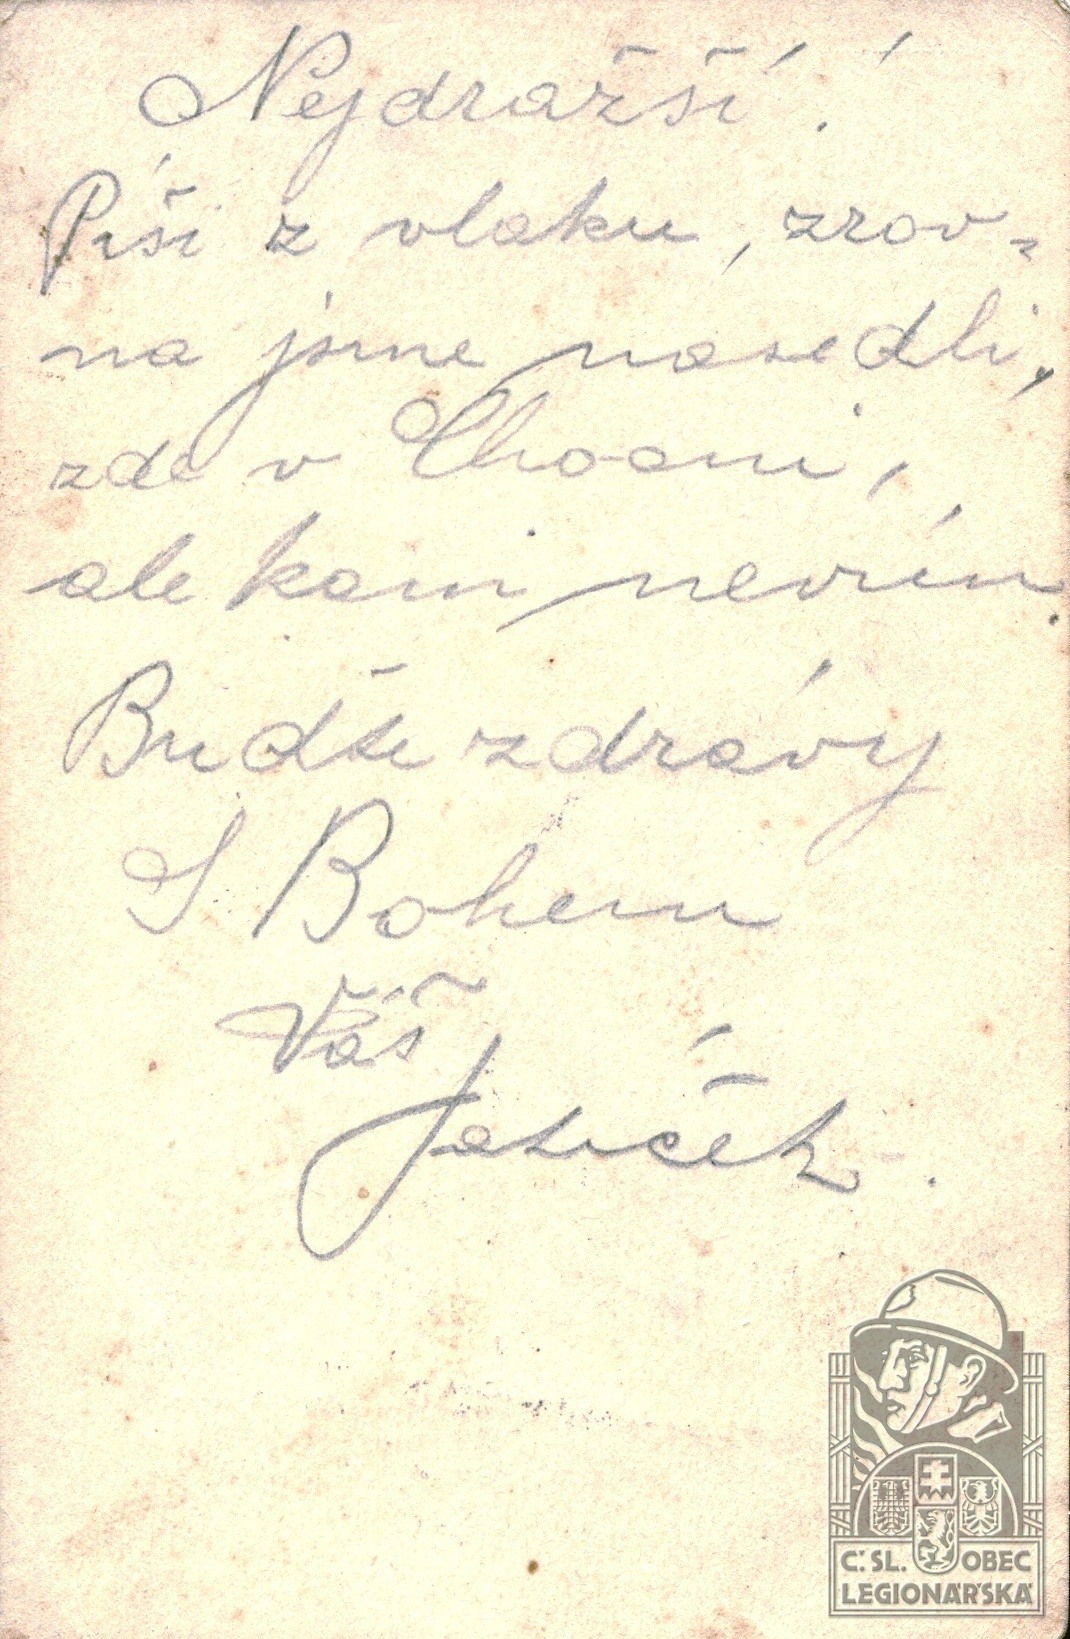 Nejdražší!
Píši z vlaku, zrov-
na jsme nasedli,
zde v Chocni,
ale kam nevím.
Buďte zdrávy
S Bohem
Váš
Jatíček.
Č.SL. OBEC
LEGIONÁŘSKÁ